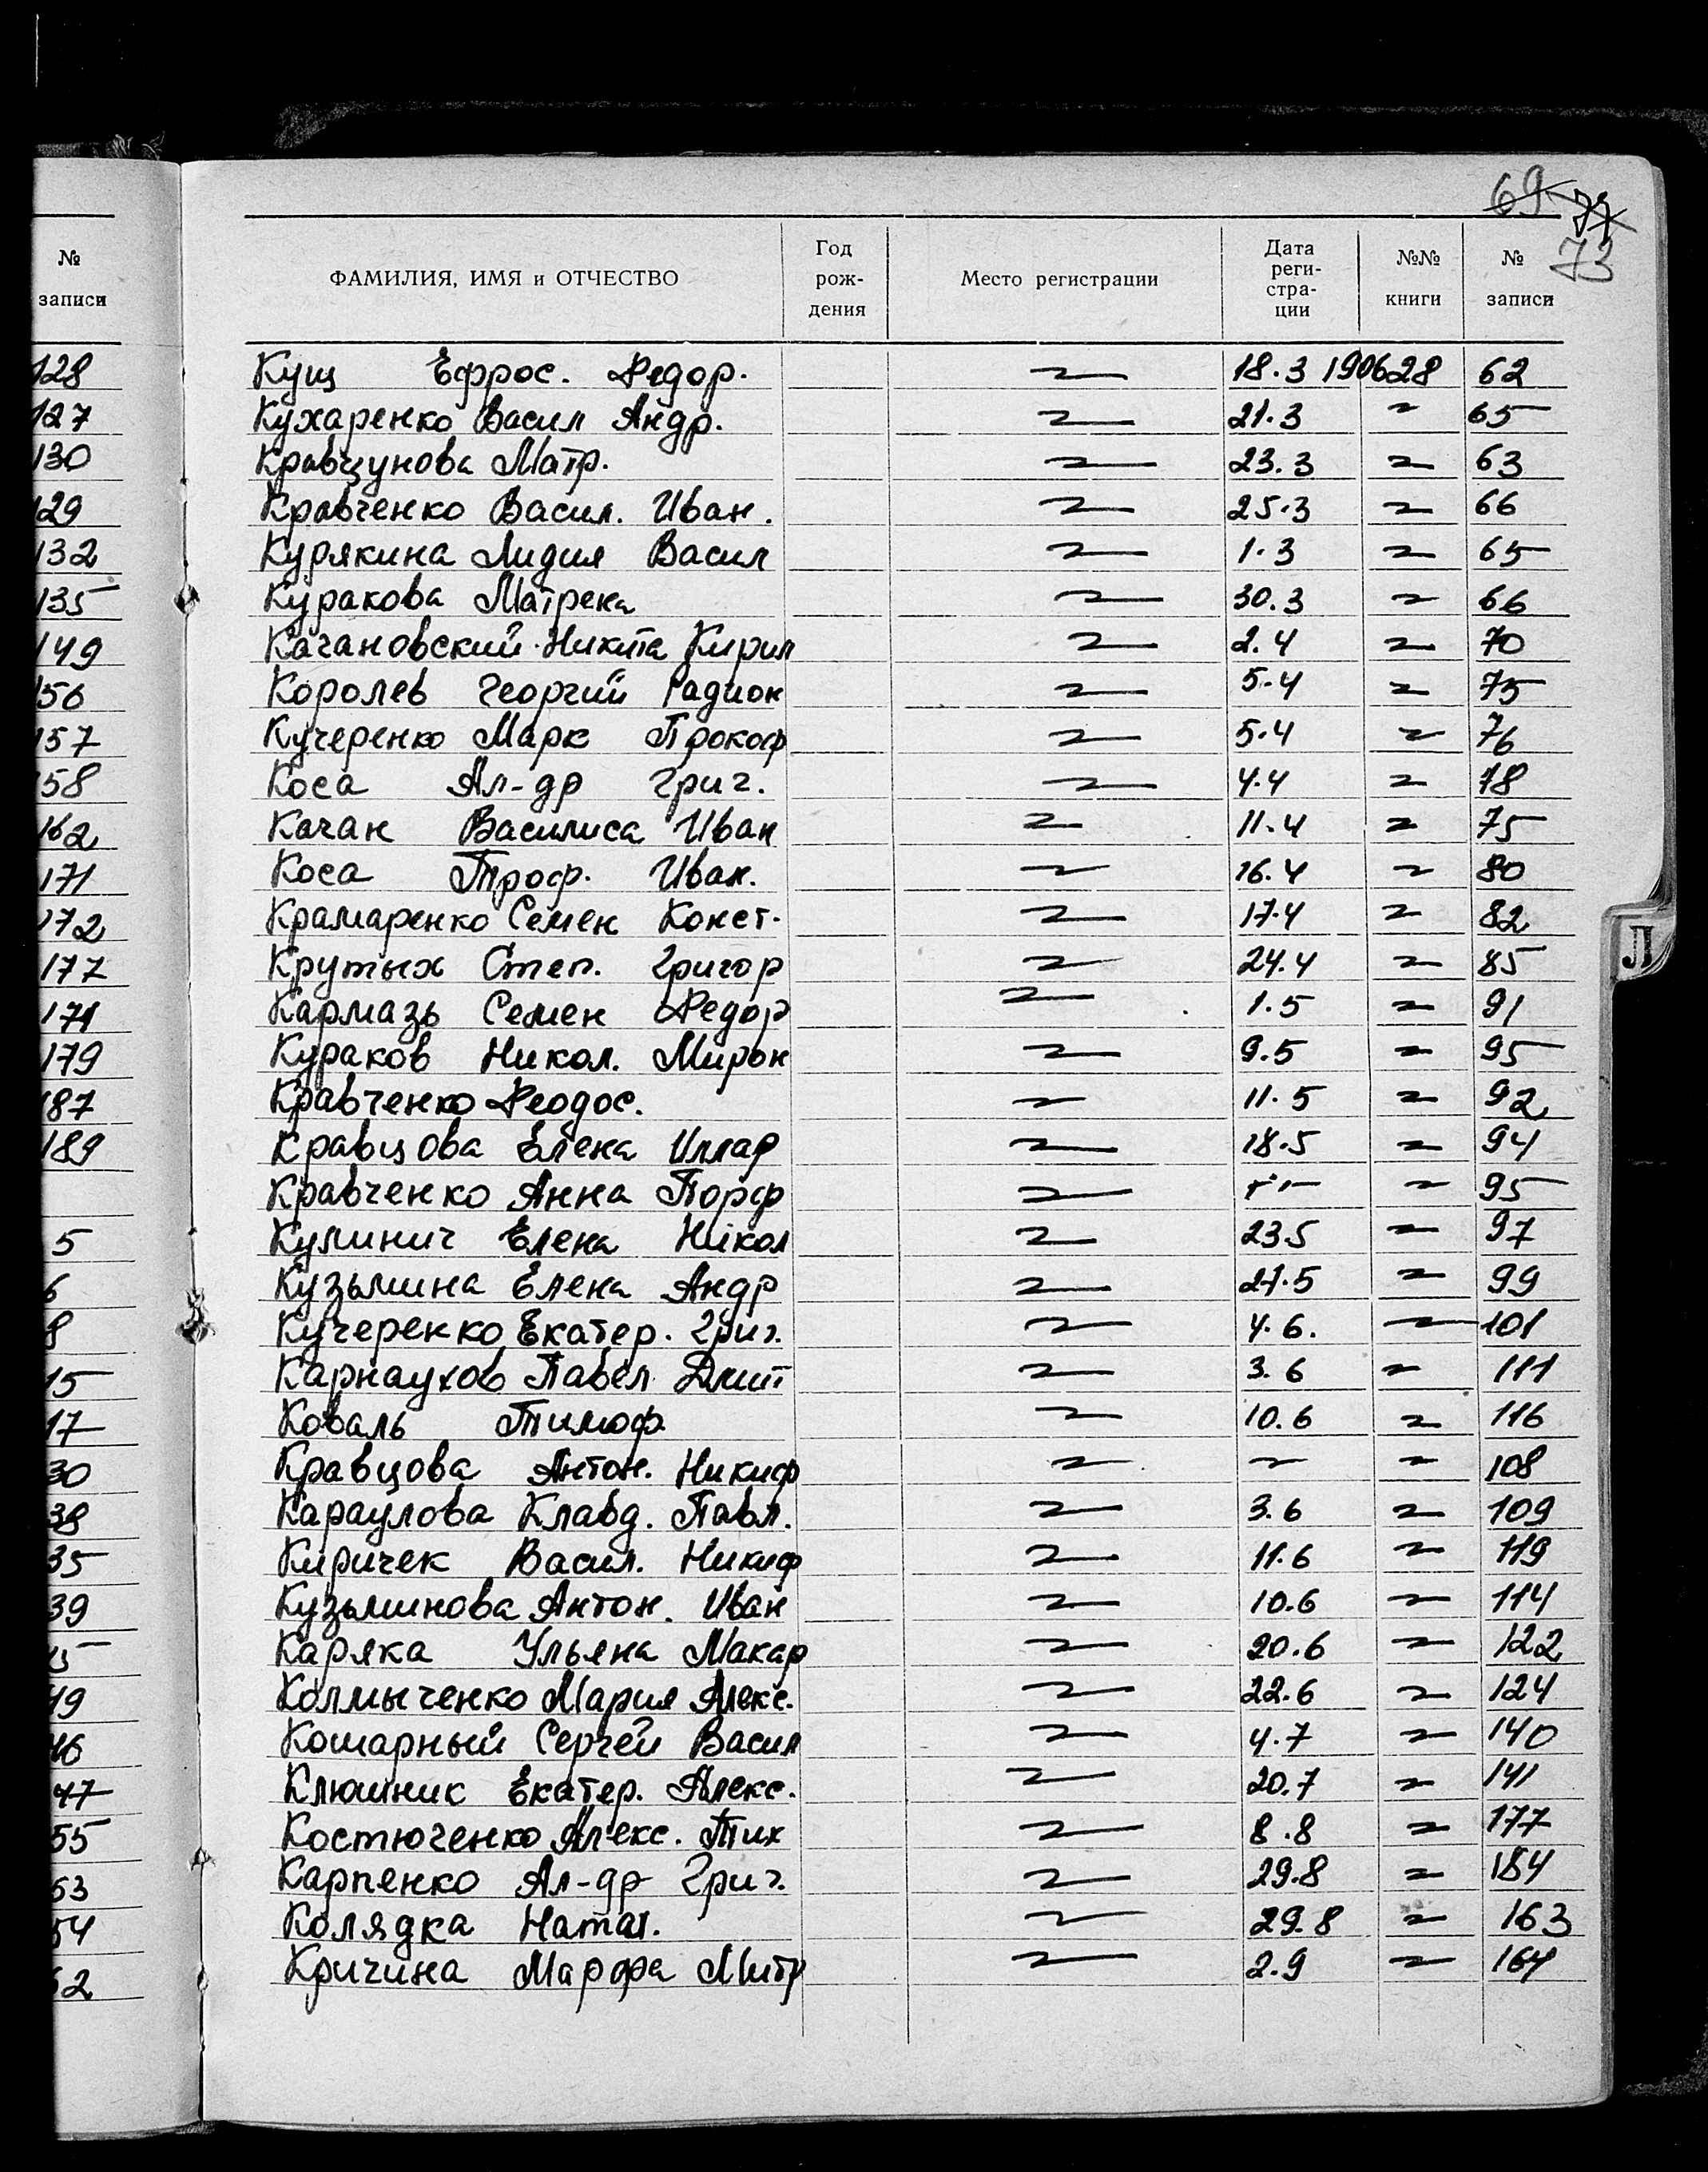 69 71
73
№ записи
ФАМИЛИЯ, ИМЯ и ОТЧЕСТВО Год рождения Место регистрации Дата регистрации №№ книги № записи
128
127
130
129
132
135
149
156
157
158
162
171
172
177
171
179
187
189
5
6
8
15
17
30
38
35
39
45
49
46
47
55
53
54
52
Кущ Ефрос. Федор. 〃 18.3 1906 28 62
Кухаренко Васил Андр. 〃 21.3 〃 65
Кравцунова Матр. 〃 23.3 〃 63
Кравченко Васил. Иван. 〃 25.3 〃 66
Курякина Лидия Васил 〃 1.3 〃 65
Куракова Матрена 〃 30.3 〃 66
Качановский Никита Кирил 〃 2.4 〃 70
Королев Георгий Радион 〃 5.4 〃 75
Кучеренко Марк Прокоф 〃 5.4 〃 76
Коса Ал-др Григ. 〃 4.4 〃 78
Качан Василиса Иван 〃 11.4 〃 75
Коса Троф. Иван. 〃 16.4 〃 80
Крамаренко Семен Конст. 〃 17.4 〃 82
Крутых Степ. Григор 〃 24.4 〃 85
Кармазь Семен Федор 〃 1.5 〃 91
Кураков Никол. Мирон 〃 9.5 〃 95
Кравченко Феодос. 〃 11.5 〃 92
Кравцова Елена Иллар 〃 18.5 〃 94
Кравченко Анна Порф 〃 〃 〃 95
Кулинич Елена Никол 〃 23.5 〃 97
Кузьмина Елена Андр 〃 27.5 〃 99
Кучеренко Екатер. Григ. 〃 4.6. 〃 101
Карнаухов Павел Дмит 〃 3.6 〃 111
Коваль Тимоф 〃 10.6 〃 116
Кравцова Антон. Никиф 〃 〃 〃 108
Караулова Клавд. Павл. 〃 3.6 〃 109
Киричек Васил. Никиф 〃 11.6 〃 119
Кузьминова Антон. Иван 〃 10.6 〃 114
Каряка Ульяна Макар 〃 20.6 〃 122
Колмыченко Мария Алекс. 〃 22.6 〃 124
Кошарный Сергей Васил 〃 4.7 〃 140
Клюшник Екатер. Алекс. 〃 20.7 〃 141
Костюченко Алекс. Тих 〃 8.8 〃 177
Карпенко Ал-др Григ. 〃 29.8 〃 184
Колядка Натал. 〃 29.8 〃 163
Кричина Марфа Митр 〃 2.9 〃 164
Л